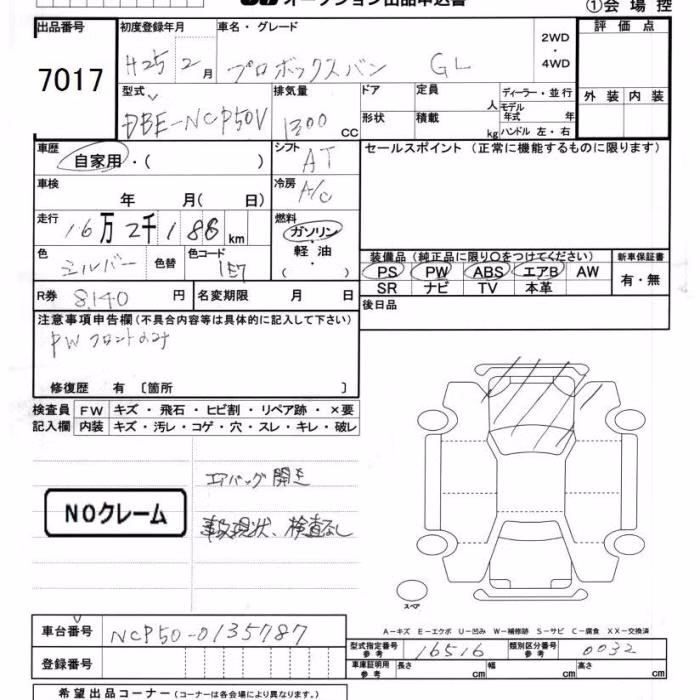 オークション出品申込書
①会場控
出品番号 初度登録年月 車名・グレード 評価点
7017 H25 2月 プロボックスバン GL 2WD・4WD
型式 排気量 ドア 定員 人 ディーラー・並行
DBE-NCP50V 1300 CC 形状 積載 kg モデル年式 年
ハンドル 左・右
外装 内装
車歴 自家用・( ) シフト AT セールスポイント (正常に機能するものに限ります)
車検 年 月( 日) 冷房 A/C
走行 16万2千188km 燃料 ガソリン・軽油・( )
色 シルバー 色替 色コード 1E7
装備品 (純正品に限り○をつけてください) 新車保証書
PS PW ABS エアB AW 有・無
SR ナビ TV 本革
R券 8140円 名変期限 月 日 後日品
注意事項申告欄(不具合内容等は具体的に記入して下さい)
PW フロントのみ
修復歴 有〔箇所 〕
検査員 FW キズ・飛石・ヒビ割・リペア跡・×要
記入欄 内装 キズ・汚レ・コゲ・穴・スレ・キレ・破レ
エアバッグ開き
NOクレーム
事故現状、検査なし
スペア
A-キズ E-エクボ U-凹み W-補修跡 S-サビ C-腐食 XX-交換済
車台番号 NCP50-0135787
型式指定番号 参考 16516 類別区分番号 参考 0032
登録番号 車庫証明用 参考 長さ cm 幅 cm 高さ cm
希望出品コーナー(コーナーは各会場により異なります。)